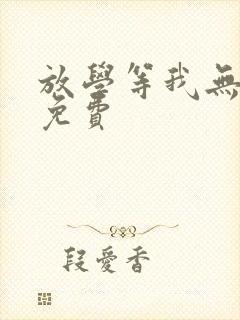 放學等我無
免費
段愛香